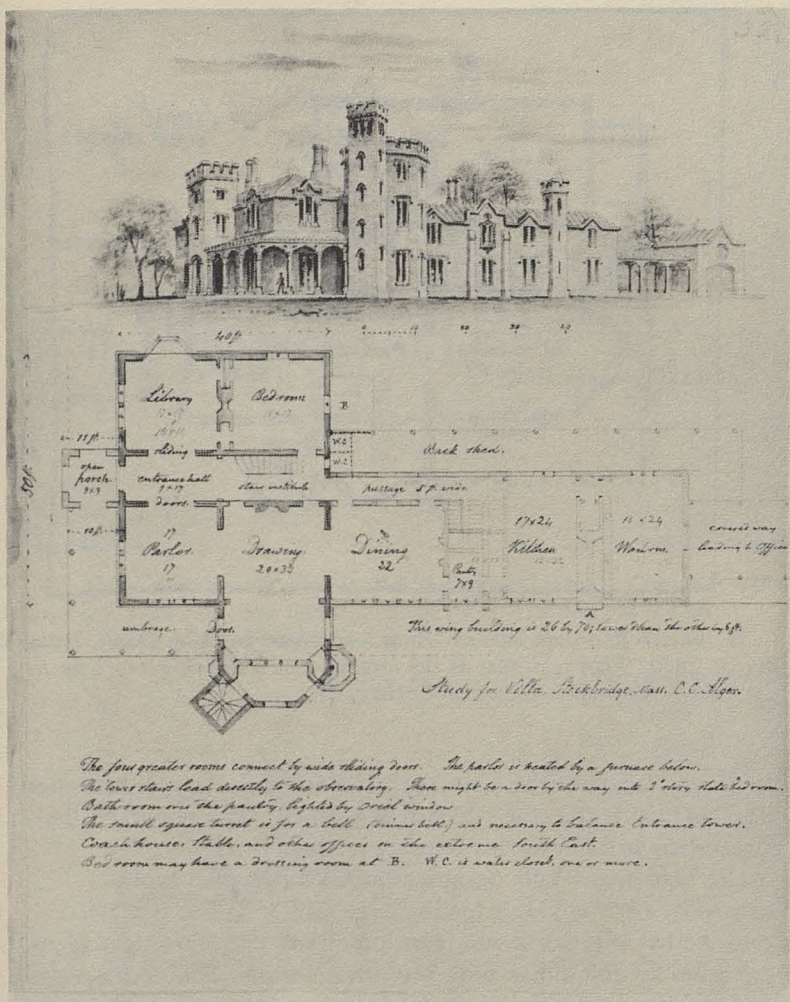 40 ft.
Library
Bedroom
B
W.C
W.C
Back shed.
11 ft.
sliding
open
porch.
9x9
entrance hall
9x17
doors.
passage 5 ft. wide
50 ft.
10 ft.
17
Parlor.
17
Drawing.
20x33
Dining
22
Pantry
7x9
17x24
Kitchen
x24
covered way
leading to Offices
umbrage.
Door.
A
This wing building is 26 by 70; lower than the other by 6 ft.
Study for Villa, Stockbridge, Mass. C.C. Alger.
The four greater rooms connect by wide sliding doors. The parlor is heated by a furnace below.
The tower stairs lead directly to the observatory. There might be a door by the way into 2d story state bedroom.
Bath room over the pantry, lighted by oriel window
The small square turret is for a bell (dinner bell) and necessary to balance Entrance tower.
Coach house, stable, and other offices on the extreme South East.
Bedroom may have a dressing room at B. W.C. is water closet, one or more.